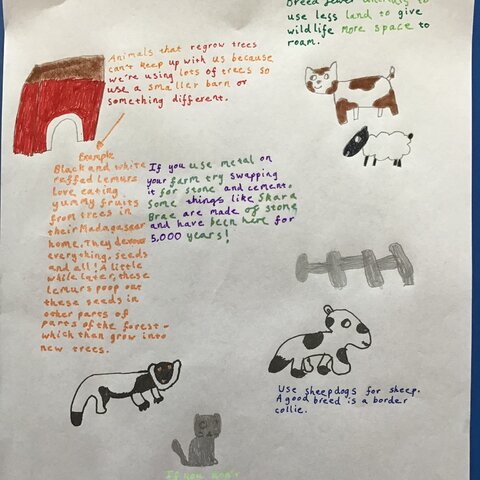 breed fewer animals to
use less land to give
wildlife more space to
roam.
Animals that regrow trees
can't keep up with us because
we're using lots of trees so
use a smaller barn or
something different.
Example:
Black and white
ruffed lemurs
love eating
yummy fruits
from trees in
their Madagascar
home. They devour
everything, seeds
and all! A little
while later, these
lemurs poop out
these seeds in
other parts of
parts of the forest -
which than grow into
new trees.
If you use metal on
your farm try swapping
it for stone and cement.
Some things like Skara
Brae are made of stone
and have been here for
5,000 years!
Use sheepdogs for sheep.
A good breed is a border
collie.
If you don't